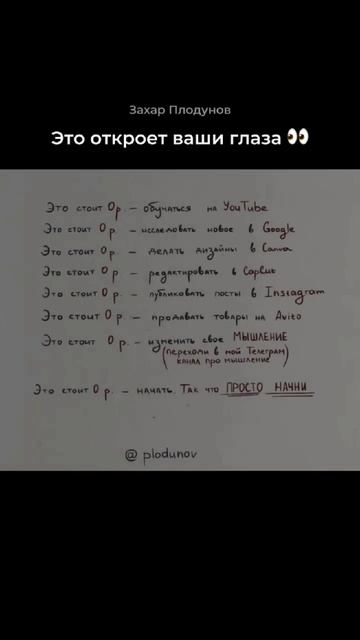 Захар Плодунов
Это откроет ваши глаза 👀
Это стоит 0р. – обучаться на YouTube
Это стоит 0р. – исследовать новое в Google
Это стоит 0р. – делать дизайны в Canva
Это стоит 0р. – редактировать в CapCut
Это стоит 0р. – публиковать посты в Instagram
Это стоит 0р. – продавать товары на Avito
Это стоит 0р. – изменить свое МЫШЛЕНИЕ
(переходи в мой Телеграм
канал про мышление)
Это стоит 0р. – начать. Так что ПРОСТО НАЧНИ
@ plodunov